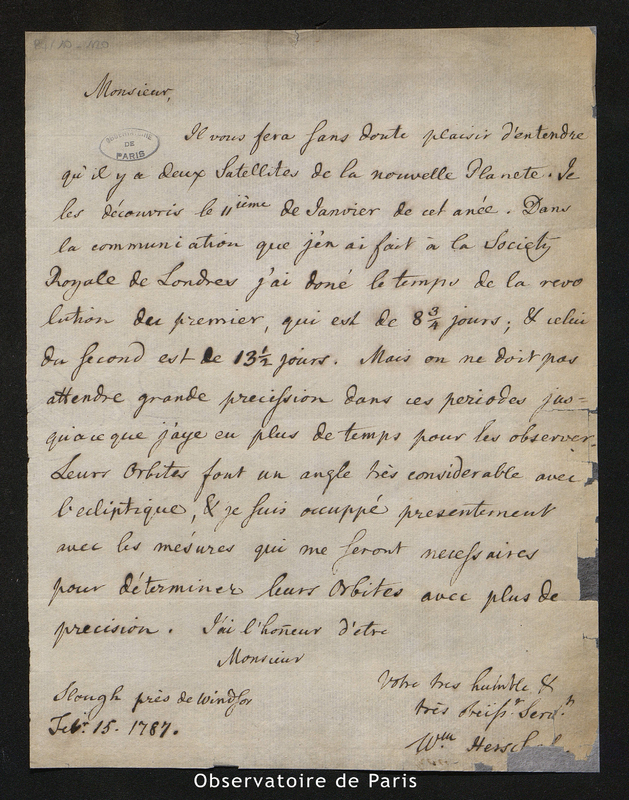 Monsieur,
OBSERVATOIRE
DE
PARIS
Il vous fera sans doute plaisir d'entendre
qu'il y a deux Satellites de la nouvelle Planete. Je
les découvris le 11ième de Janvier de cet anée. Dans
la communication que j'en ai fait à la Society
Royale de Londres j'ai doné le temps de la revo
lution du premier, qui est de 8 3/4 jours; & celui
du second est de 13 1/2 jours. Mais on ne doit pas
attendre grande precission dans ces periodes jus=
qu'a ce que j'aye eu plus de temps pour les observer.
Leurs Orbites font un angle très considerable avec
l'ecliptique, & je suis occuppé presentement
avec les mésures qui me seront necessaires
pour déterminer leurs Orbites avec plus de
precision. J'ai l'honeur d'etre
Monsieur
Votre tres humble &
très obeisst. Servt.
Wm Herschel.
Slough près de Windsor
Febr. 15. 1787.
Observatoire de Paris